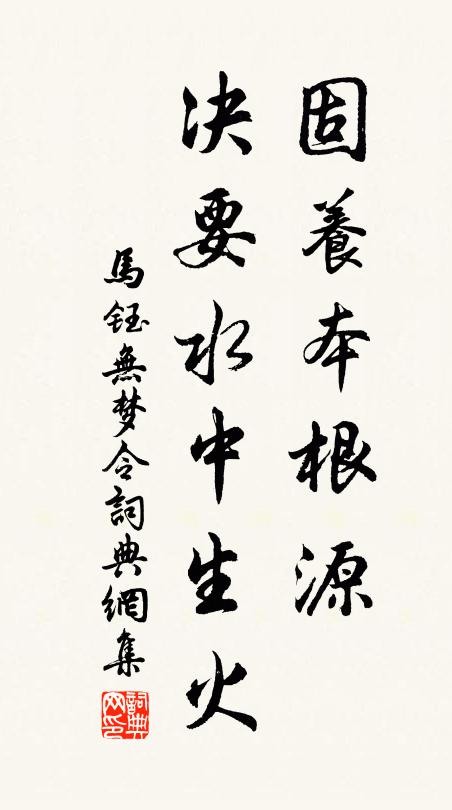 固養本根源
决要水中生火
馬鈺無梦令詞典網集
詞典网印